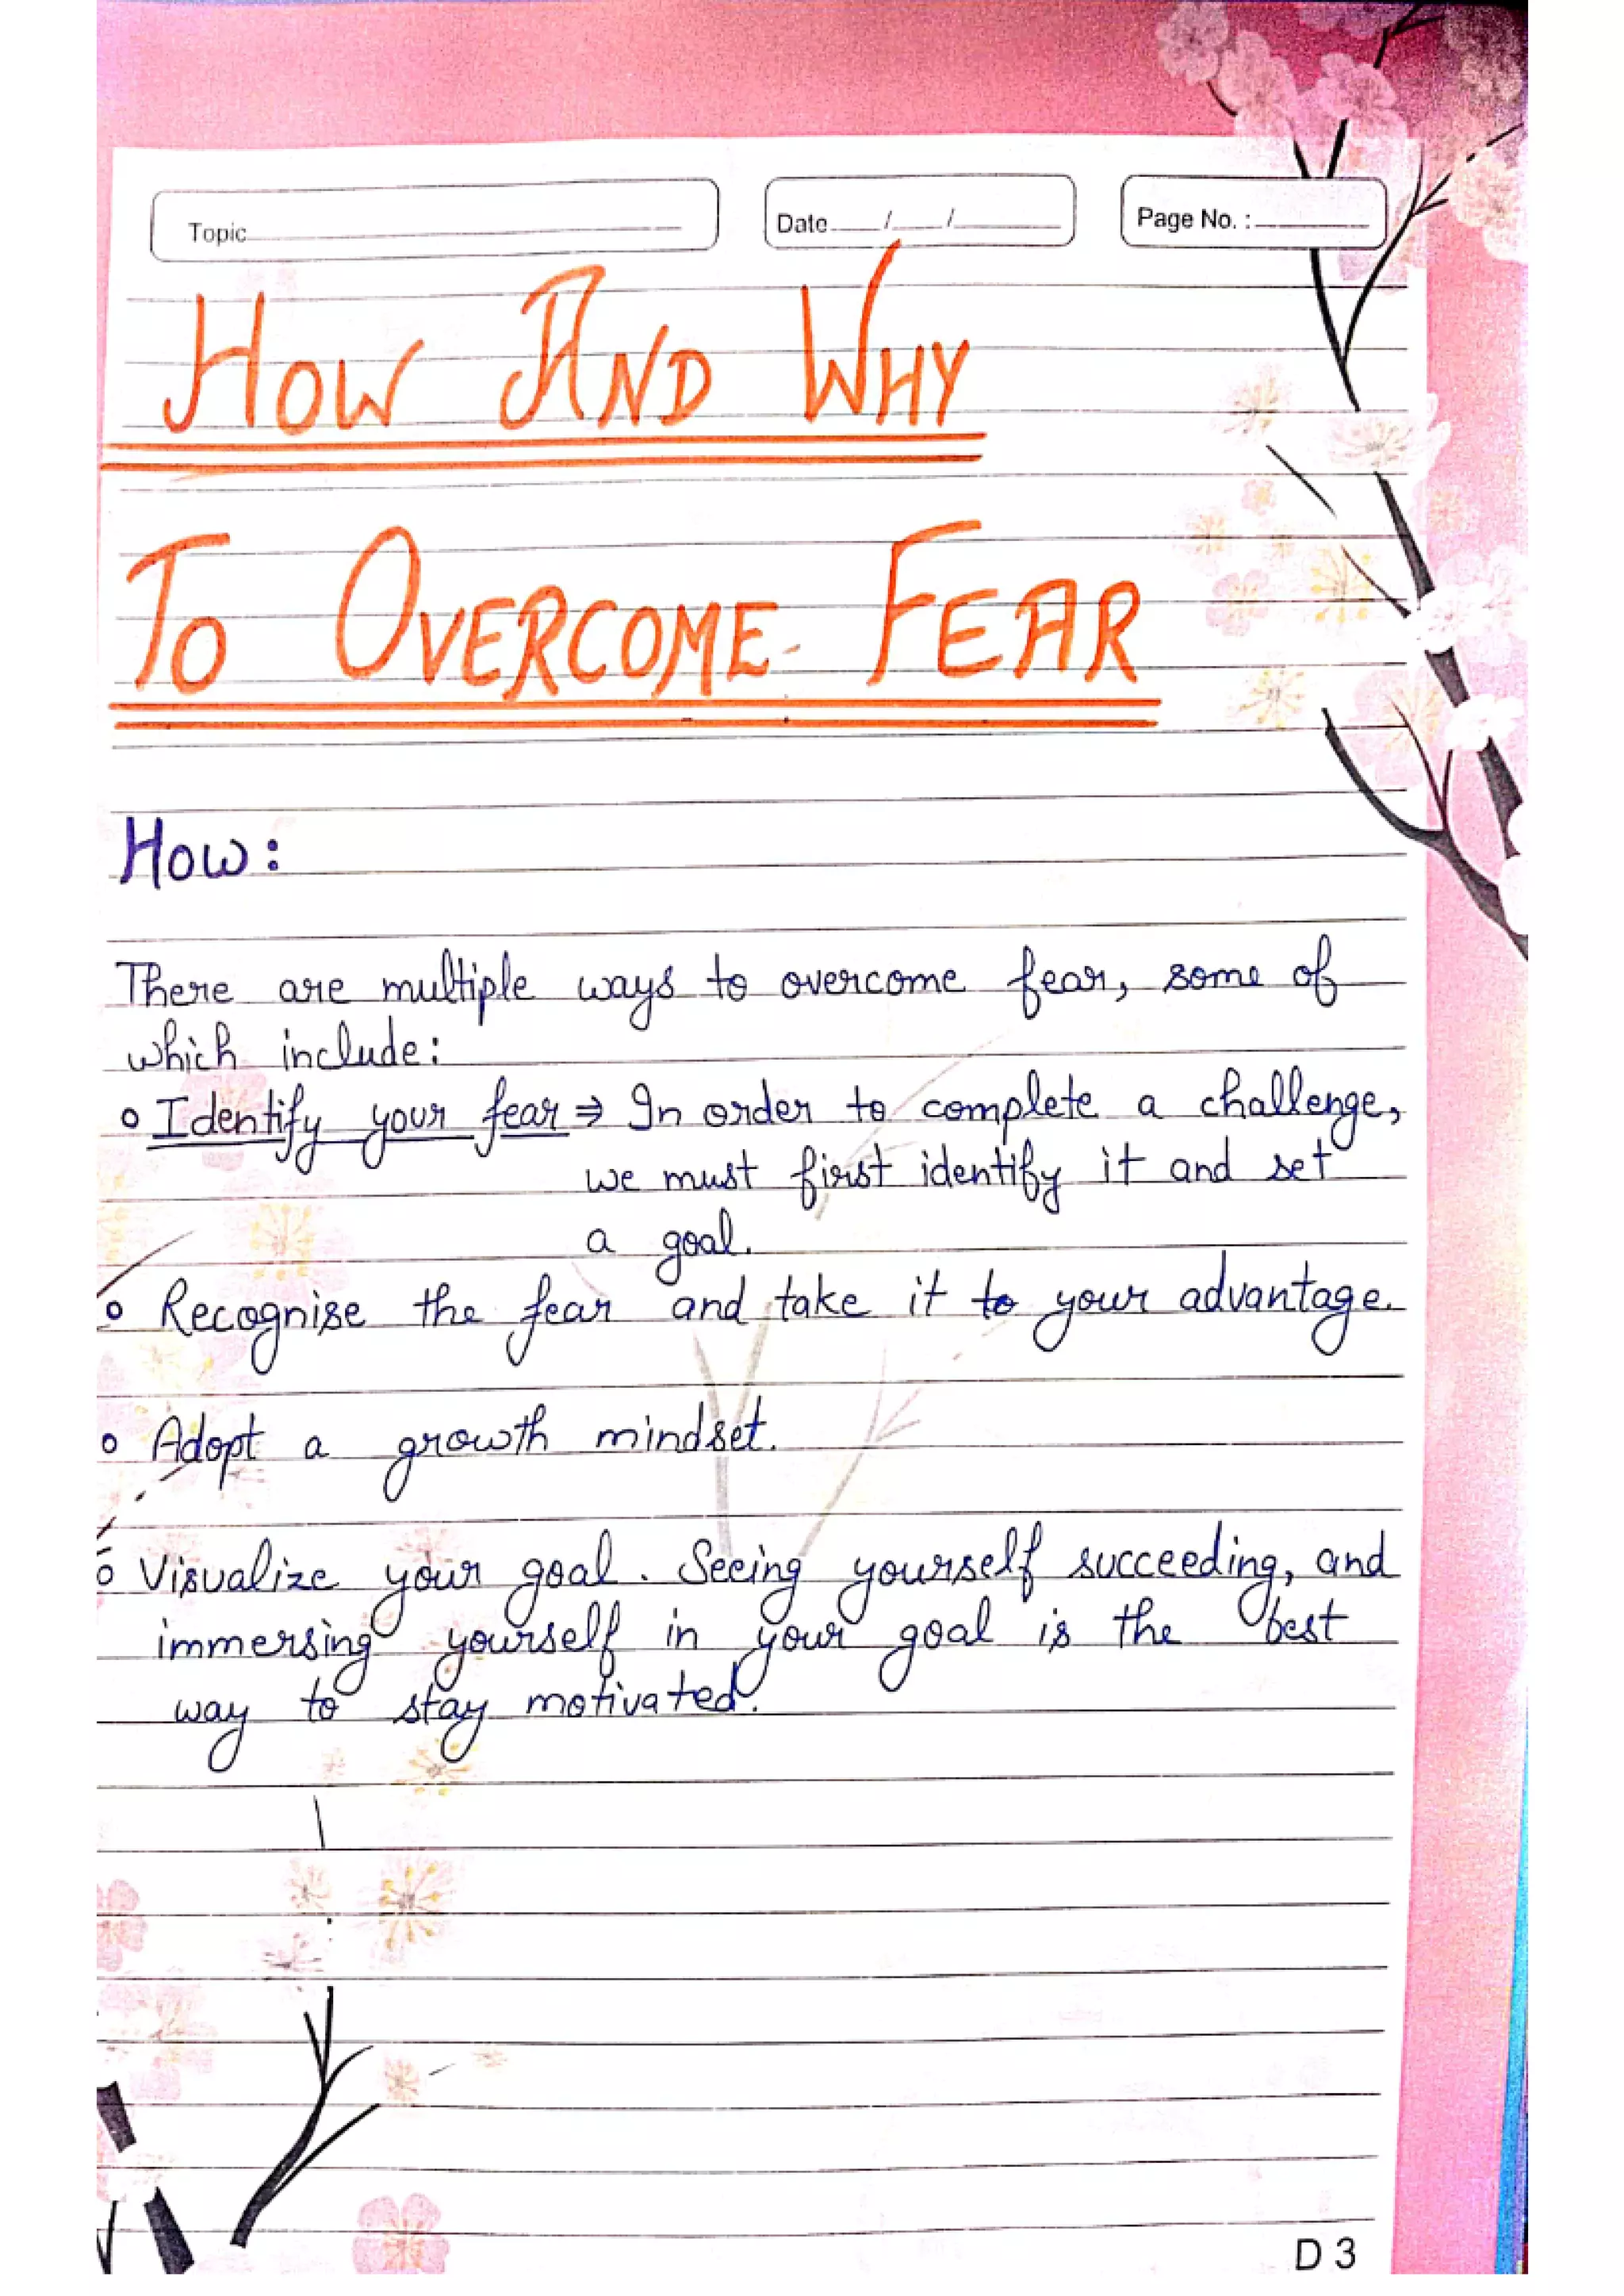 Topic
Date / /
Page No. :
HOW AND WHY
TO OVERCOME FEAR
How:
There are multiple ways to overcome fear, some of
which include:
Identify your fear ⇒ In order to complete a challenge,
we must first identify it and set
a goal.
Recognise the fear and take it to your advantage.
Adopt a growth mindset.
Visualize your goal. Seeing yourself succeeding, and
immersing yourself in your goal is the best
way to stay motivated.
D 3